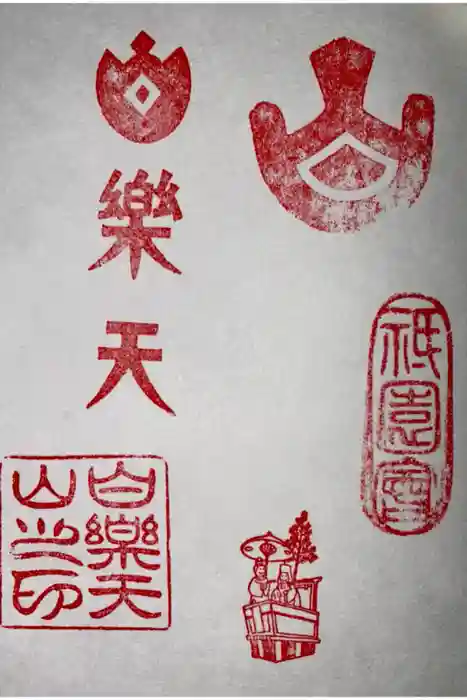 山
祇園會
白樂天
白樂天
山之印